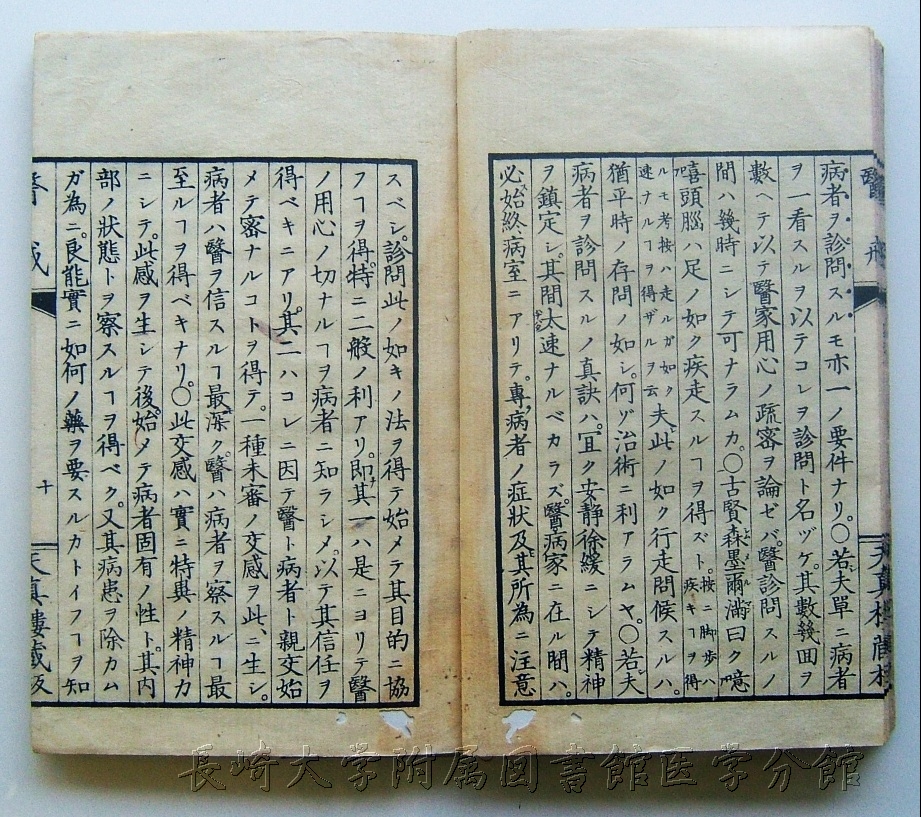 病者ヲ診問スルモ亦一ノ要件ナリ。○若夫單ニ病者
ヲ一看スルヲ以テコレヲ診問ト名ヅケ。其數幾回ヲ
數ヘテ以テ醫家用心ノ疏密ヲ論ゼバ。醫診問スルノ
間ハ幾時ニシテ可ナラムカ。○古賢森墨爾満曰ク噫
嘻頭腦ハ足ノ如ク疾走スルヿヲ得ズト。按ニ脚歩ハ疾キヿヲ得
ルモ考按ハ走ルガ如ク速ナルヿヲ得ザルヲ云夫此ノ如ク行走問候スルハ。
猶平時ノ存問ノ如シ。何ゾ治術ニ利アラムヤ。○若夫
病者ヲ診問スルノ真訣ハ。宜ク安静徐緩ニシテ精神
ヲ鎮定シ。其間太速ナルベカラズ。醫病家ニ在ル間ハ。
必始終病室ニアリテ。專病者ノ症状及其所為ニ注意
スベシ。診問此ノ如キノ法ヲ得テ始メテ其目的ニ協
フヿヲ得。特ニ二般ノ利アリ。即其一ハ是ニヨリテ醫
ノ用心ノ切ナルヿヲ病者ニ知ラシメ。以テ其信任ヲ
得ベキニアリ。其二ハコレニ因テ醫ト病者ト親交始
メテ密ナルコトヲ得テ。一種未審ノ交感ヲ此ニ生シ。
病者ハ醫ヲ信スルヿ最深ク。醫ハ病者ヲ察スルヿ最
至ルヿヲ得ベキナリ。○此交感ハ實ニ特異ノ精神力
ニシテ。此感ヲ生シテ後。始メテ病者固有ノ性ト。其内
部ノ狀態トヲ察スルヿヲ得ベク。又其病患ヲ除カム
ガ為ニ。良能實ニ如何ノ藥ヲ要スルカトイフヿヲ知
醫戒
十
天真樓藏板
長崎大学附属図書館医学分館